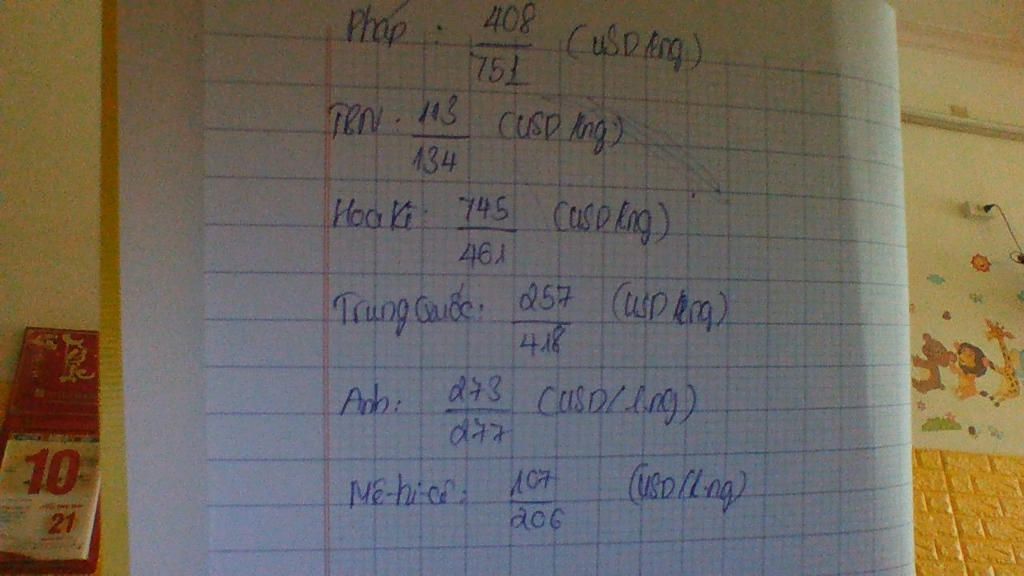 Pháp : 408/751 (USD/lng)
TBN : 113/134 (USD/lng)
Hoa Kì: 745/461 (USD/lng)
Trung Quốc: 257/418 (USD/lng)
Anh: 273/277 (USD/l.ng)
Mê-hi-cô: 107/206 (USD/l.ng)
10
21